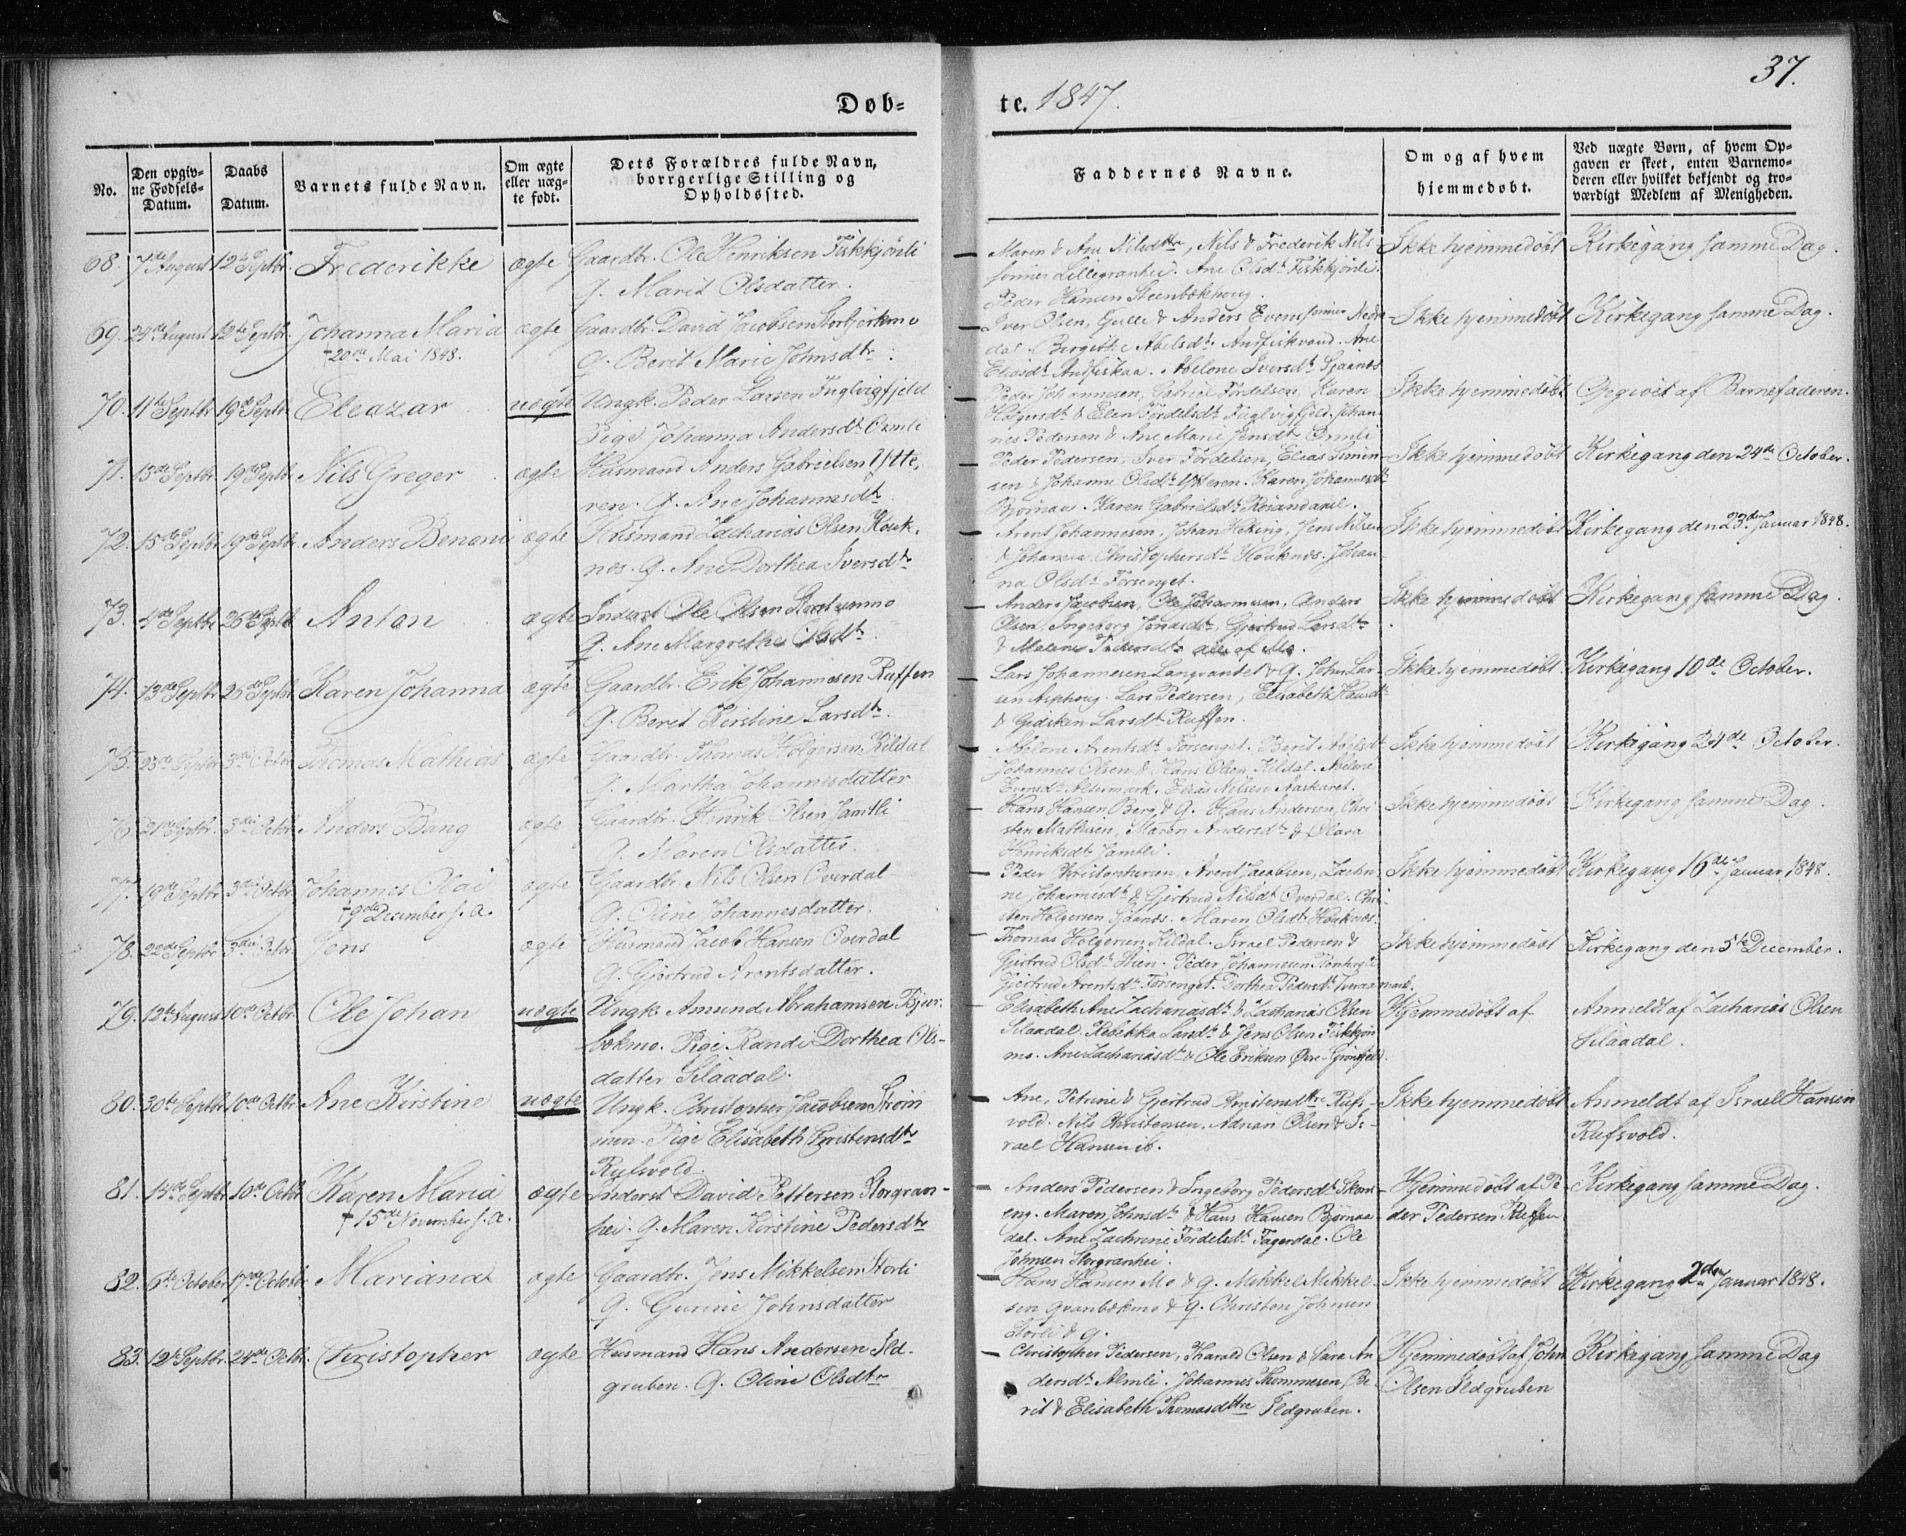 37.
Døb-
te. 1847.
No.
Den opgiv-
ne Fødsels-
Datum.
Daabs
Datum.
Barnets fulde Navn.
Om ægte
eller uæg-
te født.
Dets Forældres fulde Navn,
borgerlige Stilling og
Opholdssted.
Faddernes Navne.
Om og af hvem
hjemmedøbt.
Ved uægte Børn, af hvem Op-
gaven er skeet, enten Barnemo-
deren eller hvilket bekjendt og tro-
værdigt Medlem af Menigheden.
68. 7de August 12te Septbr. Frederikke ægte Gaardbr. Ole Henriksen Fiskkjønli
Q. Marit Olsdatter.
Maren & Ane Nilsdttre, Nils & Frederik Nils-
sønner Lillegranhei. Ane Olsdtr Fiskkjønli.
Peder Hansen Steenbækhoug.
Ikke hjemmedøbt Kirkegang samme Dag.
69. 24de August 12te Septbr. Johanna Maria ægte Gaardbr. David Jacobsen Stortjørkmo
† 20de Mai 1848.
Q. Berit Marie Johnsdtr.
Iver Olsen, Gulle & Anders Evensønner Nedre-
dal. Birgitte Abelsdtr Andfiskvand. Ane
Eliasdtr Andfiskaa. Abelone Iversdtr Sjaanes
Ikke hjemmedøbt Kirkegang samme Dag.
70. 11te Septbr 19de Septbr. Eleazar uægte Ungk. Peder Larsen Fuglvigfjeld
Pige Johanna Andersdtr Ormli
Peder Johannesen, Gabriel Fordelsen, Karen
Holgersdtr & Elen Fordelsdtr Fuglvigfjeld. Johan-
nes Pedersen & Ane Marie Jensdtr Ormli
Ikke hjemmedøbt Opgivet af Barnefaderen.
71. 13de Septbr. 19de Septbr. Nils Greger ægte Husmand Anders Gabrielsen Ytte-
ren. Q. Ane Johannesdtr.
Peder Pedersen, Iver Fordelsen, Elias Simen-
sen & Johanne Olsdtr Ytteren. Karen Johannesdtr
Bjørnaa. Karen Gabrielsdtr Røsandaael.
Ikke hjemmedøbt Kirkegang den 24de October.
72. 15de Septbr. 19de Septbr. Anders Benoni ægte Husmand Zacharias Olsen Houk-
nes. Q. Ane Dorthea Iversdtr
Arent Johannesen, Johan Heking, Jens Nilsen
& Johanna Christophersdtr Houknes. Johan-
na Olsdtr Forsenget.
Ikke hjemmedøbt Kirkegang den 23de Januar 1848.
73. 4de Septbr 26de Septbr Anton ægte Inderst Ole Olsen
Q. Ane Margrethe Olsdtr.
Anders Jacobsen, Ole Johannesen, Anders
Olsen, Ingeborg Jonasdtr, Gjertrud Larsdtr
& Malene Pedersdtr alle af Mo.
Ikke hjemmedøbt Kirkegang samme Dag.
74. 13de Septbr 26de Septbr. Karen Johanna ægte Gaardbr. Erik Johannesen Røffen
Q. Berit Kirstine Larsdtr.
Lars Johannesen Langrantet & Q. John Lar-
sen Asphoug. Lars Pedersen, Elisabeth Hansdtr
& Gidsken Larsdtr Røffen.
Ikke hjemmedøbt Kirkegang 10de October.
75. 23de Septbr 3die Octbr. Thomas Mathias ægte Gaardbr. Thomas Holgersen Kildal
Q. Martha Johannesdatter
Abelone Arentsdtr Forsenget. Berit Abelsdtr
Johannes Olsen & Hans Olsen Kildal. Abelone
Evensdtr Altermark. Elias Nilsen Aaskaret.
Ikke hjemmedøbt Kirkegang 24de October.
76. 21de Septbr. 3die Octbr. Anders Bang ægte Gaardbr. Henrik Olsen Jamtli
Q. Maren Olsdatter.
Hans Hansen Berg & Q. Hans Andersen, Chri-
sten Mathisen, Maren Andersdtr & Olava
Henriksdtr Jamtli.
Ikke hjemmedøbt Kirkegang samme Dag.
77. 19de Septbr 3die Octbr. Johannes Olai ægte Gaardbr. Nils Olsen Overdal
† 9de December s. a.
Q. Oline Johannesdatter.
Peder Christophersen, Arent Jacobsen, Zachri-
ne Johannesdtr & Gjertrud Nilsdtr Overdal. Chri-
sten Holgersen Sjaanes. Maren Olsdtr Houknes.
Ikke hjemmedøbt Kirkegang 16de Januar 1848.
78. 22de Septbr 3die Octbr. Jens ægte Husmand Jacob Hansen Overdal
Q. Gjertrud Arentsdatter.
Thomas Holgersen Kildal. Israel Pedersen &
Gjertrud Olsdtr Hien. Peder Johannesen
Gjertrud Arentsdtr Forsenget. Dorthea Pedersdtr Tveraamark.
Ikke hjemmedøbt Kirkegang den 5te December.
79. 12te August 10de Octbr. Ole Johan uægte Ungk. Amund Abrahamsen Bjur-
bækmo. Pige Randi Dorthea Ols-
datter Silaadal.
Elisabeth Ane Zachariasdtr & Zacharias Olsen
Silaadal. Rebekka Larsdtr & Jens Olsen Fiskkjøn
mo. Ane Zachariasdtr & Ole Eriksen Øvre-Grønfjeld.
Hjemmedøbt af Anmeldt af Zacharias Olsen
Silaadal.
80. 30te Septbr 10de Octbr. Ane Kirstine uægte Ungk. Christopher Jacobsen Strøm
men. Pige Elisabeth Christensdtr
Rufsvold.
Ane, Petrine & Gjertrud Christensdttre Rufs-
vold. Nils Christensen, Adrian Olsen & Is-
rael Hansen ib.
Ikke hjemmedøbt Anmeldt af Israel Hansen
Rufsvold.
81. 14de Septbr 10de Octbr. Karen Maria ægte Inderst David Pettersen Storgran-
† 15de November s. a.
hei. Q. Maren Kirstine Pedersdtr
Anders Pedersen & Ingeborg Pedersdtr Skom-
eng. Maren Johnsdtr & Hans Hansen Bjørnaa-
dal. Ane Zachrine Fordelsdtr Fagerdal. Ole
Johnsen Storgranhei.
Hjemmedøbt af Pe-
der Pedersen Røffen
Kirkegang samme Dag
82. 6te October 17de Octobr. Mariana ægte Gaardbr. Jens Mikkelsen Storli
Q. Gurine Johnsdatter
Hans Hansen Mo & Q. Mikkel Mikkel-
sen Granbækmo & Q. Christen Johnsen
Storli & Q.
Ikke hjemmedøbt Kirkegang 2den Januar 1848.
83. 12te Septbr. 24de Octbr. Christopher ægte Husmand Hans Andersen Ild-
gruben. Q. Oline Olsdtr
Christopher Pedersen, Harald Olsen & Sara An-
dersdtr Almli. Johannes Thommesen, Be-
rit & Elisabeth Thomasdttre Ildgruben.
Hjemmedøbt af John
Olsen Ildgruben
Kirkegang samme Dag